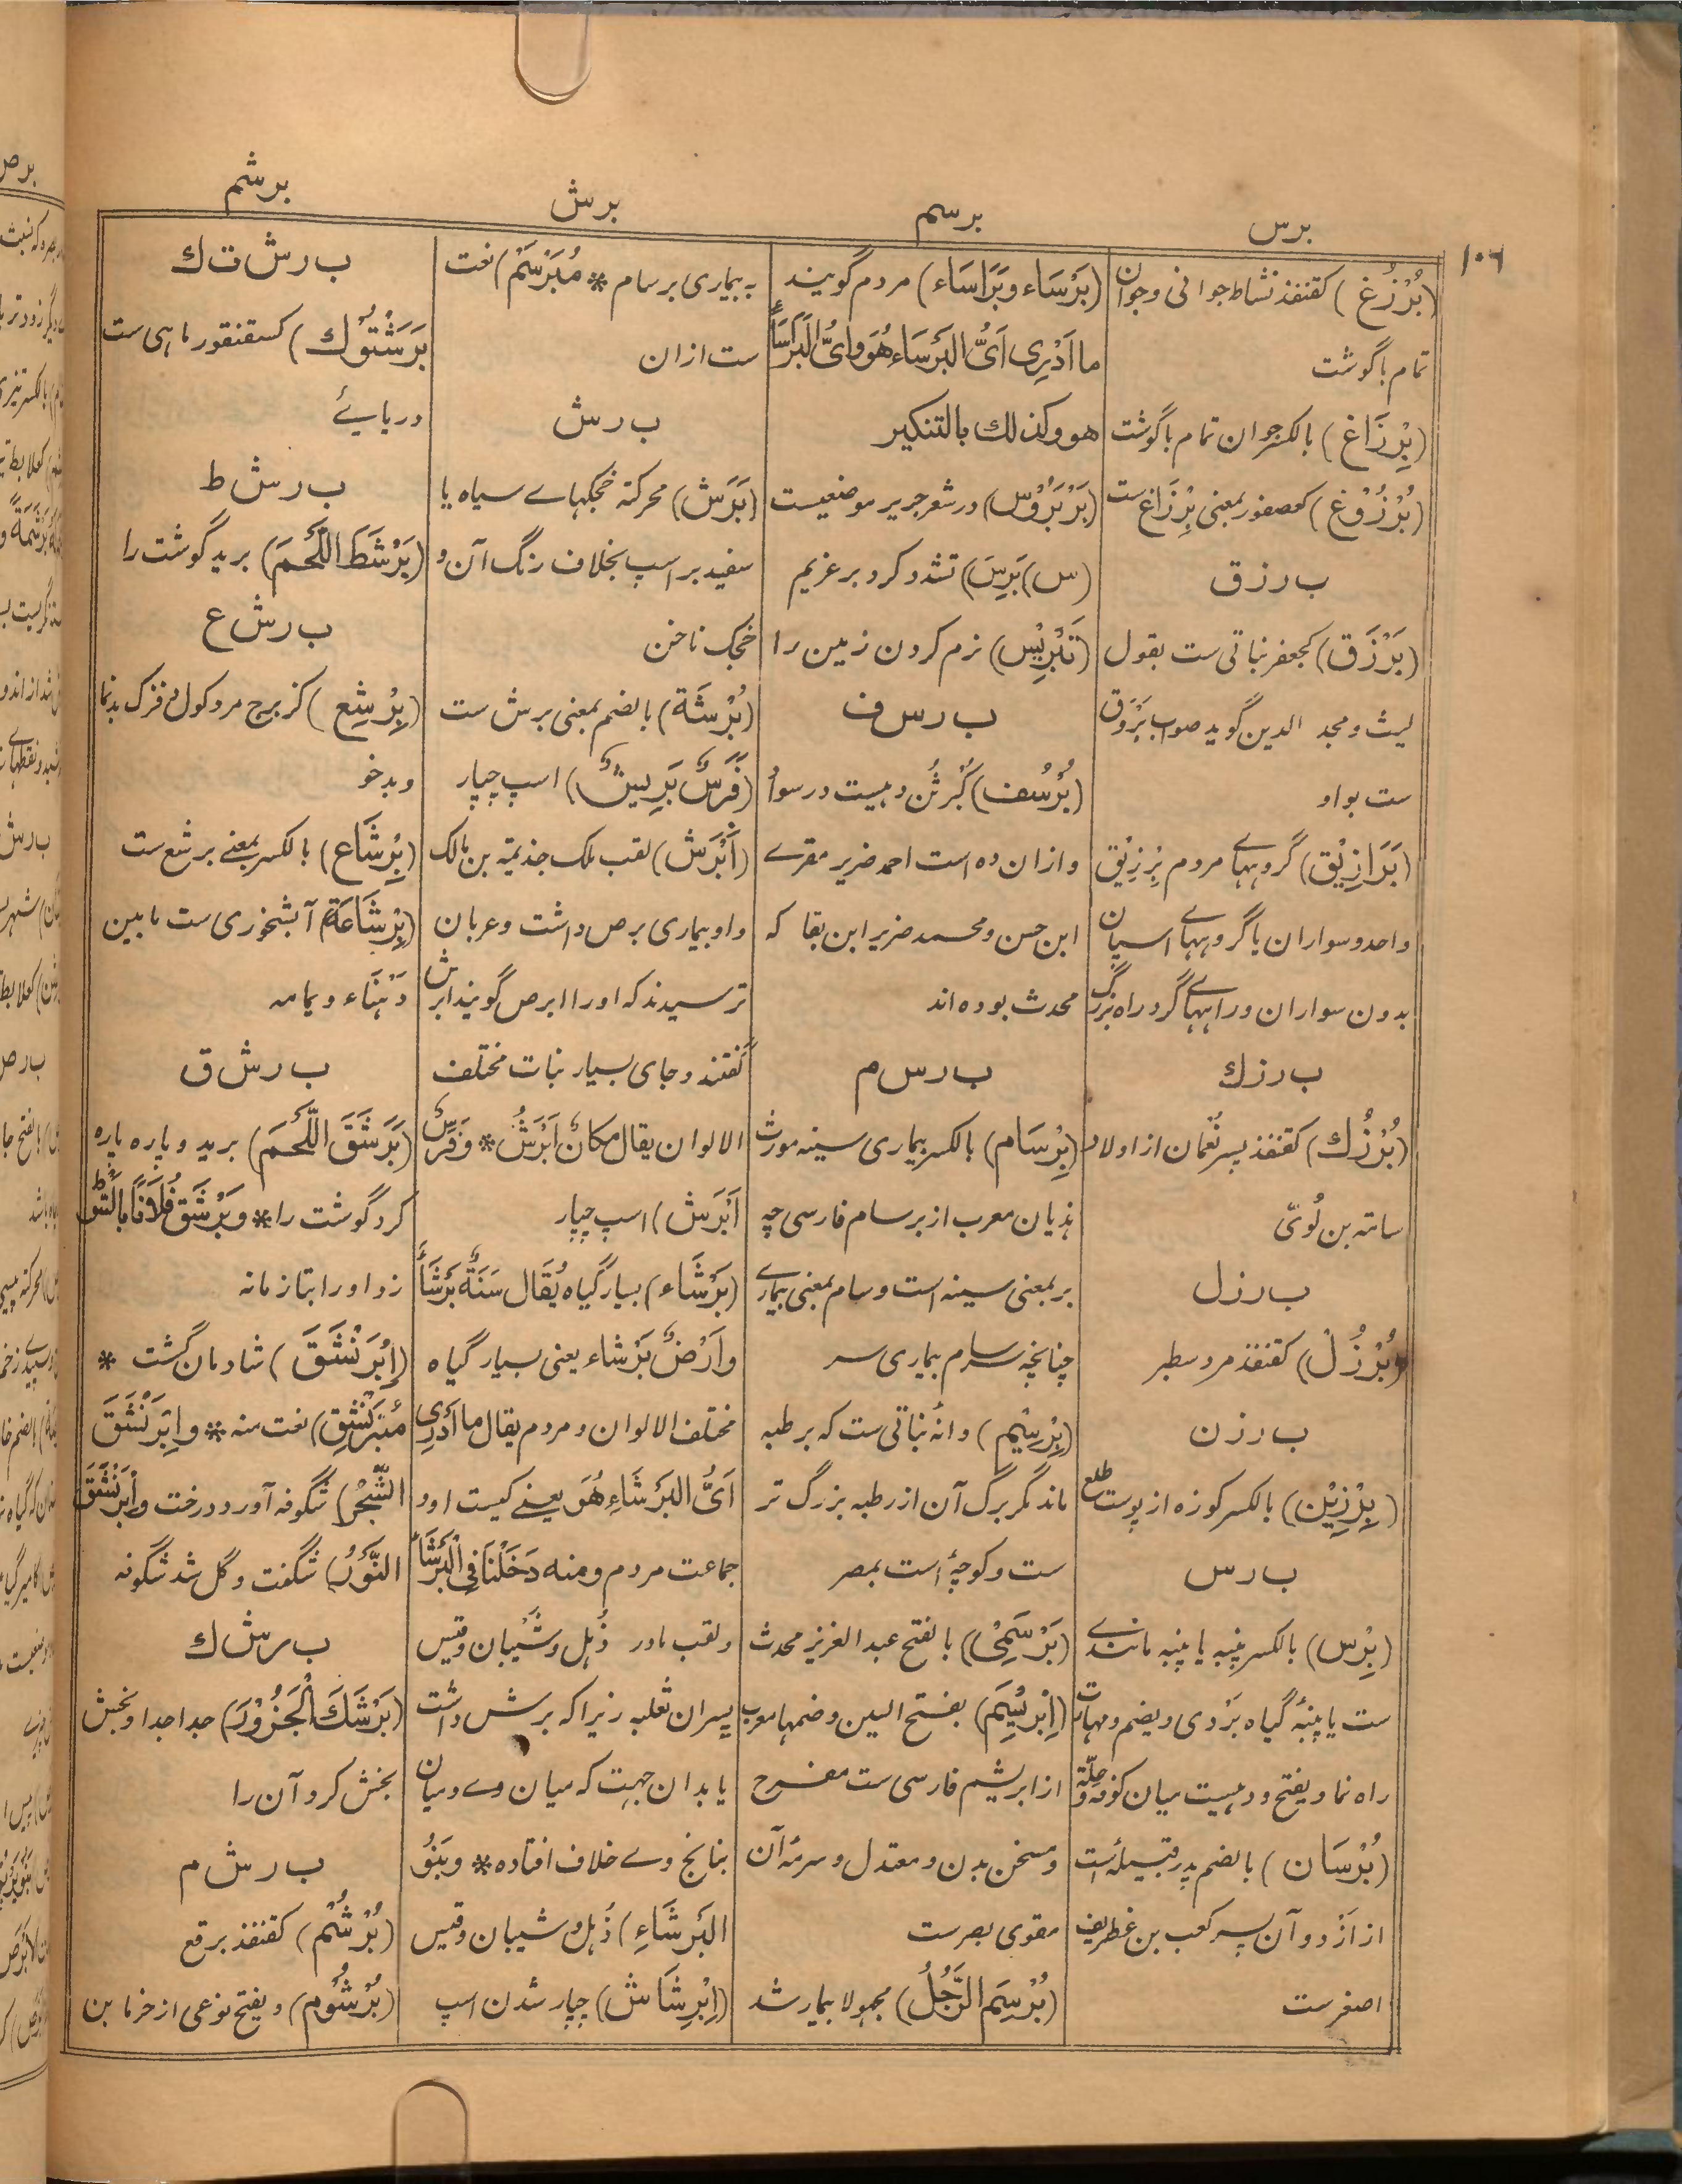 ۱۰۶
برس
برسم
برش
برشم
(بُرْزُغ) کقنفذ نشاط جوانی و جوان
تمام با گوشت
(بِرْزَاغ) بالکسر جوان تمام با گوشت
(بُرْزُوْغ) کعصفور بمعنی بِرْزَاغ ست
ب ر ز ق
(بَرْزَق) کجعفر نباتی ست بقول
لیث و مجد الدین گوید صواب بَرْوَق
ست بواو
(بَرَازِیْق) گروہہاے مردم بِرْزِیْق
واحد و سواران یا گروہہاے اسپان
بدون سواران و راہہاے گرد راہ بزرگ
ب ر ز ك
(بُرْزُك) کقنفذ پسر نُعْمان از اولاد
سامہ بن لُویّ
ب ر ز ل
(بُرْزُل) کقنفذ مرد سطبر
ب ر ز ن
(بِرْزِیْن) بالکسر کوزہ از پوست طلع
ب ر س
(بِرْس) بالکسر پنبہ یا پنبہ مانندے
ست یا پنبۂ گیاہ بَرْدی و یضم و مہارت
راہ نما و یفتح و دہیست میان کوفہ و حلّہ
(بُرْسَان) بالضم پدر قبیلہ است
از اَزْد و آن پسر کعب بن غطریف
اصغر ست
(بَرْسَاء وبَرَاسَاء) مردم گویند
ما اَدْرِی اَیُّ البَرْسَاء هُوَ وایُّ البَرَاسَاءِ
هو وکذلك بالتنکیر
(بَرْبَرُوْس) در شعر جریر موضعیست
(س) (بَرِسَ) تشدد کرد بر غریم
(تَبْرِیْس) نرم کردن زمین را
ب ر س ف
(بُرْسُف) کبُرْثُن دہیست در سواد
و ازان دہ است احمد ضریر مقرے
ابن حسن و محمد ضریر ابن بقا کہ
محدث بودہ اند
ب ر س م
(بِرْسَام) بالکسر بیماری سینہ مورث
ہذیان معرب از برسام فارسی چہ
بر بمعنی سینہ است و سام بمعنی بیمارے
چنانچہ سرسام بیماری سر
(بِرْسِیْم) دانۂ نباتی ست کہ بر طبہ
ماند مگر برگ آن از رطبہ بزرگ تر
ست و کوچۂ است بمصر
(بَرْسَمِیْ) بالفتح عبد العزیز محدث
(اِبْرِیْسَم) بفتح السین و ضمہا معرب
از ابریشم فارسی ست مفرح
و مسخن بدن و معتدل و سرمۂ آن
مقوی بصر ست
(بُرْسِمَ الرَّجُلُ) مجہولا بیمار شد
بہ بیماری برسام * مُبَرْسَم) نعت
ست ازان
ب ر ش
(بَرَش) محرکۃ خجکہاے سیاہ یا
سفید بر اسپ بخلاف رنگ آن و
خجک ناخن
(بُرْشَة) بالضم بمعنی برش ست
(فَرَسٌ بَرِیْشٌ) اسپ چپار
(اَبْرَش) لقب ملک جذیمۃ بن مالک
و او بیماری برص داشت و عربان
ترسیدند کہ او را ابرص گویند ابرش
گفتند و جای بسیار نبات مختلف
الالوان یقال مکانٌ اَبْرَشُ * وفَرَسٌ
اَبْرَش) اسپ چپار
(بَرْشَاء) بسیار گیاہ یُقَال سَنَةٌ بَرْشَاءُ
واَرْضٌ بَرْشاء یعنی بسیار گیاہ
مختلف الالوان و مردم یقال ما اَدْرِی
اَیُّ البَرْشَاءِ هُوَ یعنے کیست او و
جماعت مردم ومنه دَخَلْنَا فِی الْبَرْشَاءِ
و لقب مادر ذُہل و شَیْبان و قیس
پسران ثعلبہ زیرا کہ برش داشت
یا بدان جہت کہ میان وے و میان
بنانج وے خلاف افتادہ * وبَنُو
البَرْشَاءِ) ذُہل و شیبان و قیس
(اِبْرِشَاش) چپار شدن اسپ
ب ر ش ت ك
بَرَشْتُوْك) کسقنقور ماہی ست
دریائے
ب ر ش ط
(بَرْشَطَ اللَّحْمَ) برید گوشت را
ب ر ش ع
(بِرْشِع) کزبرج مرد کول و فزک بدنما
و بدخو
(بِرْشَاع) بالکسر بمعنے برشع ست
(بِرْشَاعَة) آبشخوری ست مابین
دَہْنَاء و یمامہ
ب ر ش ق
(بَرْشَقَ اللَّحْمَ) برید و پارہ پارہ
کرد گوشت را * وبَرْشَقَ فُلَانًا بِالسَّوْطِ
زد او را بتازمانہ
(اِبْرَنْشَقَ) شادمان گشت *
مُبْرَنْشِق) نعت منہ * واِبْرَنْشَقَ
الشَّجَرُ) شگوفہ آورد درخت واِبْرَنْشَقَ
النَّوْرُ) شگفت و گل شد شگوفہ
ب ر ش ك
(بَرْشَكَ الْجَزُوْرَ) جدا جدا و بخش
بخش کرد آن را
ب ر ش م
(بُرْشُم) کقنفذ برقع
(بُرْشُوم) و یفتح نوعی از خرما بن